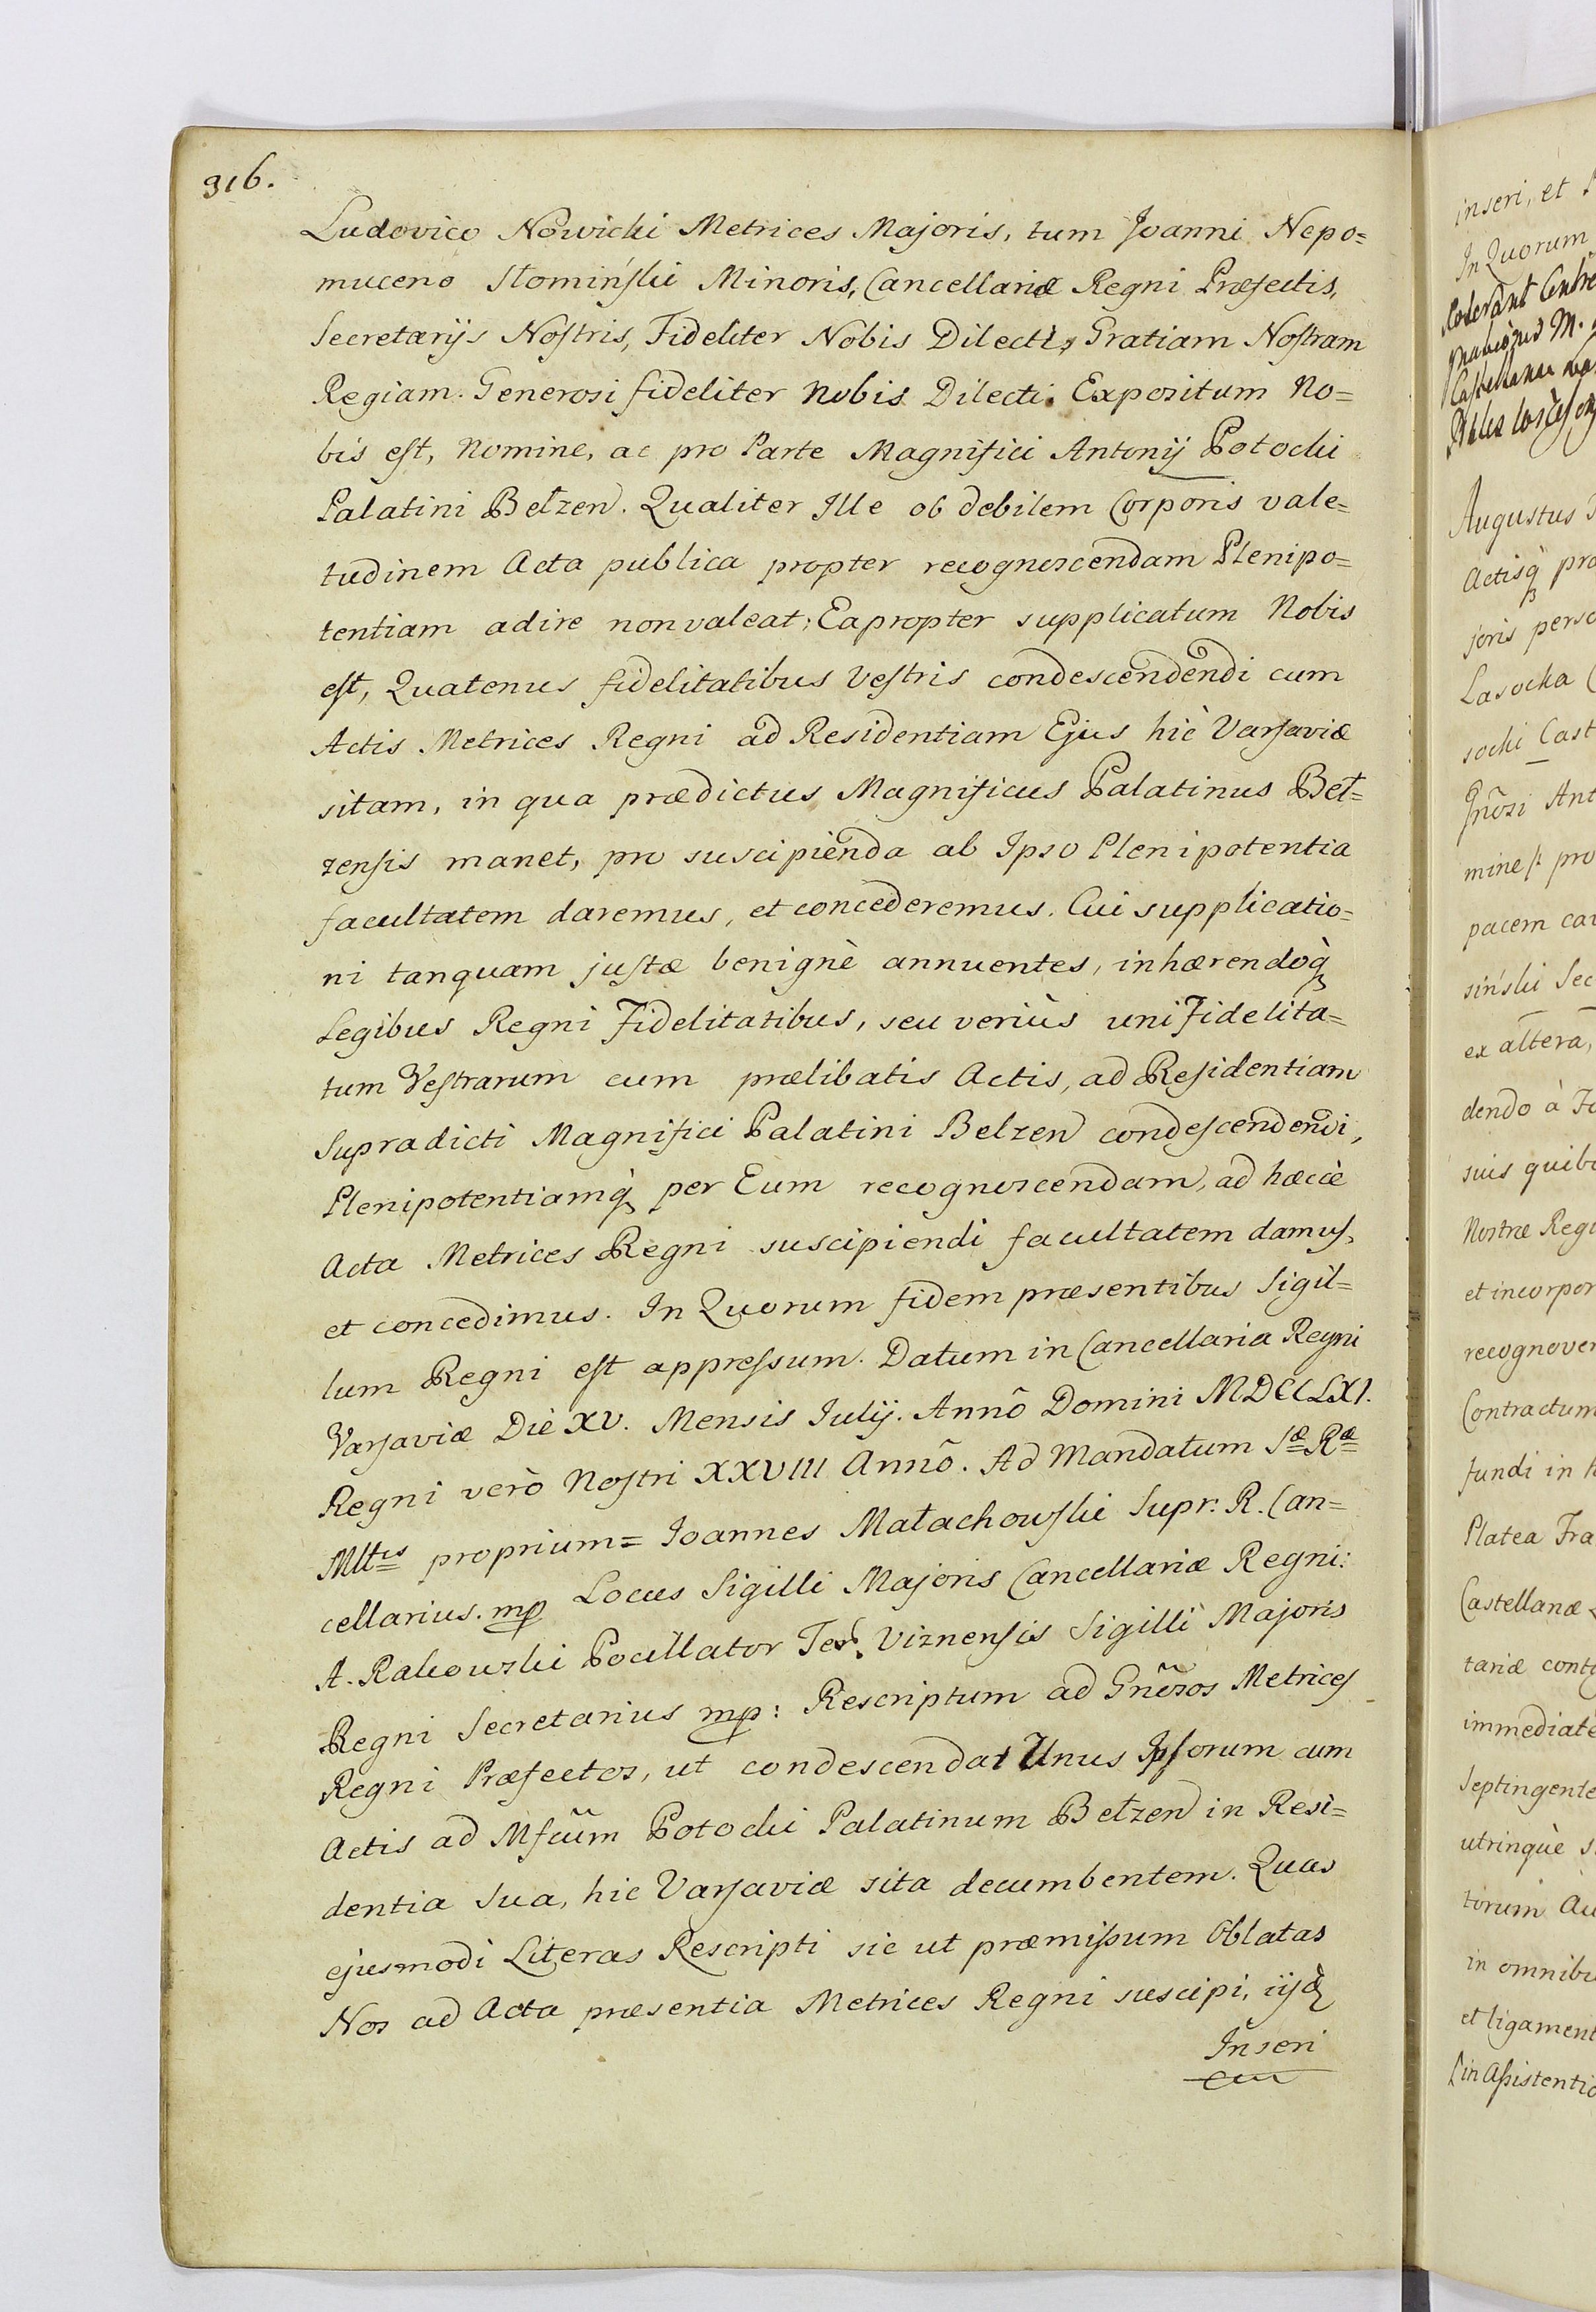 316.
Ludovico Nowicki Metrices Majoris, tum Joanni Nepo=
muceno Słomińſki Minoris, Cancellariæ Regni Præfectis,
Secretarijs Noſtris, Fideliter Nobis Dilectis, Gratiam Noſtram
Regiam. Generosi fideliter Nobis Dilecti. Expositum No=
bis eſt, Nomine, ac pro Parte Magnifici Antonij Potocki
Palatini Bełzen. Qualiter Ille ob debilem Corporis vale=
tudinem Acta publica propter recognoscendam Plenipo=
tentiam adire non valeat; Eapropter supplicatum Nobis
eſt, Quatenus fidelitatibus Veſtris condescendendi cum
Actis Metrices Regni ad Residentiam Ejus hìc Varſaviæ
sitam, in qua prædictus Magnificus Palatinus Beł=
zenſis manet, pro suscipienda ab Ipso Plenipotentia
facultatem daremus, et concederemus. Cui supplicatio=
ni tanquam juſtæ benignè annuentes, inhærendoq̀
Legibus Regni Fidelitatibus, seu veriùs uni Fidelita=
tum Veſtrarum cum prælibatis Actis, ad Reſidentiam
Supradicti Magnifici Palatini Belzen condeſcendendi,
Plenipotentiamq̀ per Eum recognoscendam, ad hæcce
Acta Metrices Regni suscipiendi facultatem damuſ,
et concedimus. In Quorum fidem præsentibus Sigil=
lum Regni eſt appreſsum. Datum in Cancellaria Regni
Varſaviæ Die XV. Mensis Julij. Annô Domini MDCCLXI.
Regni verò Noſtri XXVIII Annô. Ad Mandatum Sæ Ræ
Mttis proprium= Joannes Małachowſki Supr: R. Can=
cellarius. mp Locus Sigilli Majoris Cancellariæ Regni:
A. Rakowski Pocillator Ter. Viznenſis Sigilli Majoris
Regni Secretarius mp: Rescriptum ad Gnõsos Metriceſ
Regni Præfectos, ut condescendat Unus Ipſorum cum
Actis ad Mfcũm Potocki Palatinum Bełzen in Resi=
dentia Sua, hic Varſaviæ sita decumbentem. Quas
ejusmodi Literas Rescripti sic ut præmiſsum Oblatas
Nos ad Acta præsentia Metrices Regni suscipi, ijsq̀
Inseri
inseri, et
In Quorum
Augustus
Actisq̀ pro
joris perso
Lasocka
socki Cast
Gnõsi Ant
mine ſ: pro
pacem
sińſki Sec
ex altera,
dendo à
suis quib
Nostræ Regi
et incorpor
recognover
Contractum
fundi in
Platea Fra
Castellanæ
tariæ cont
immediatè
Septingente
utrinquè
torum Au
in omnibu
et ligament
in Aſsistentia